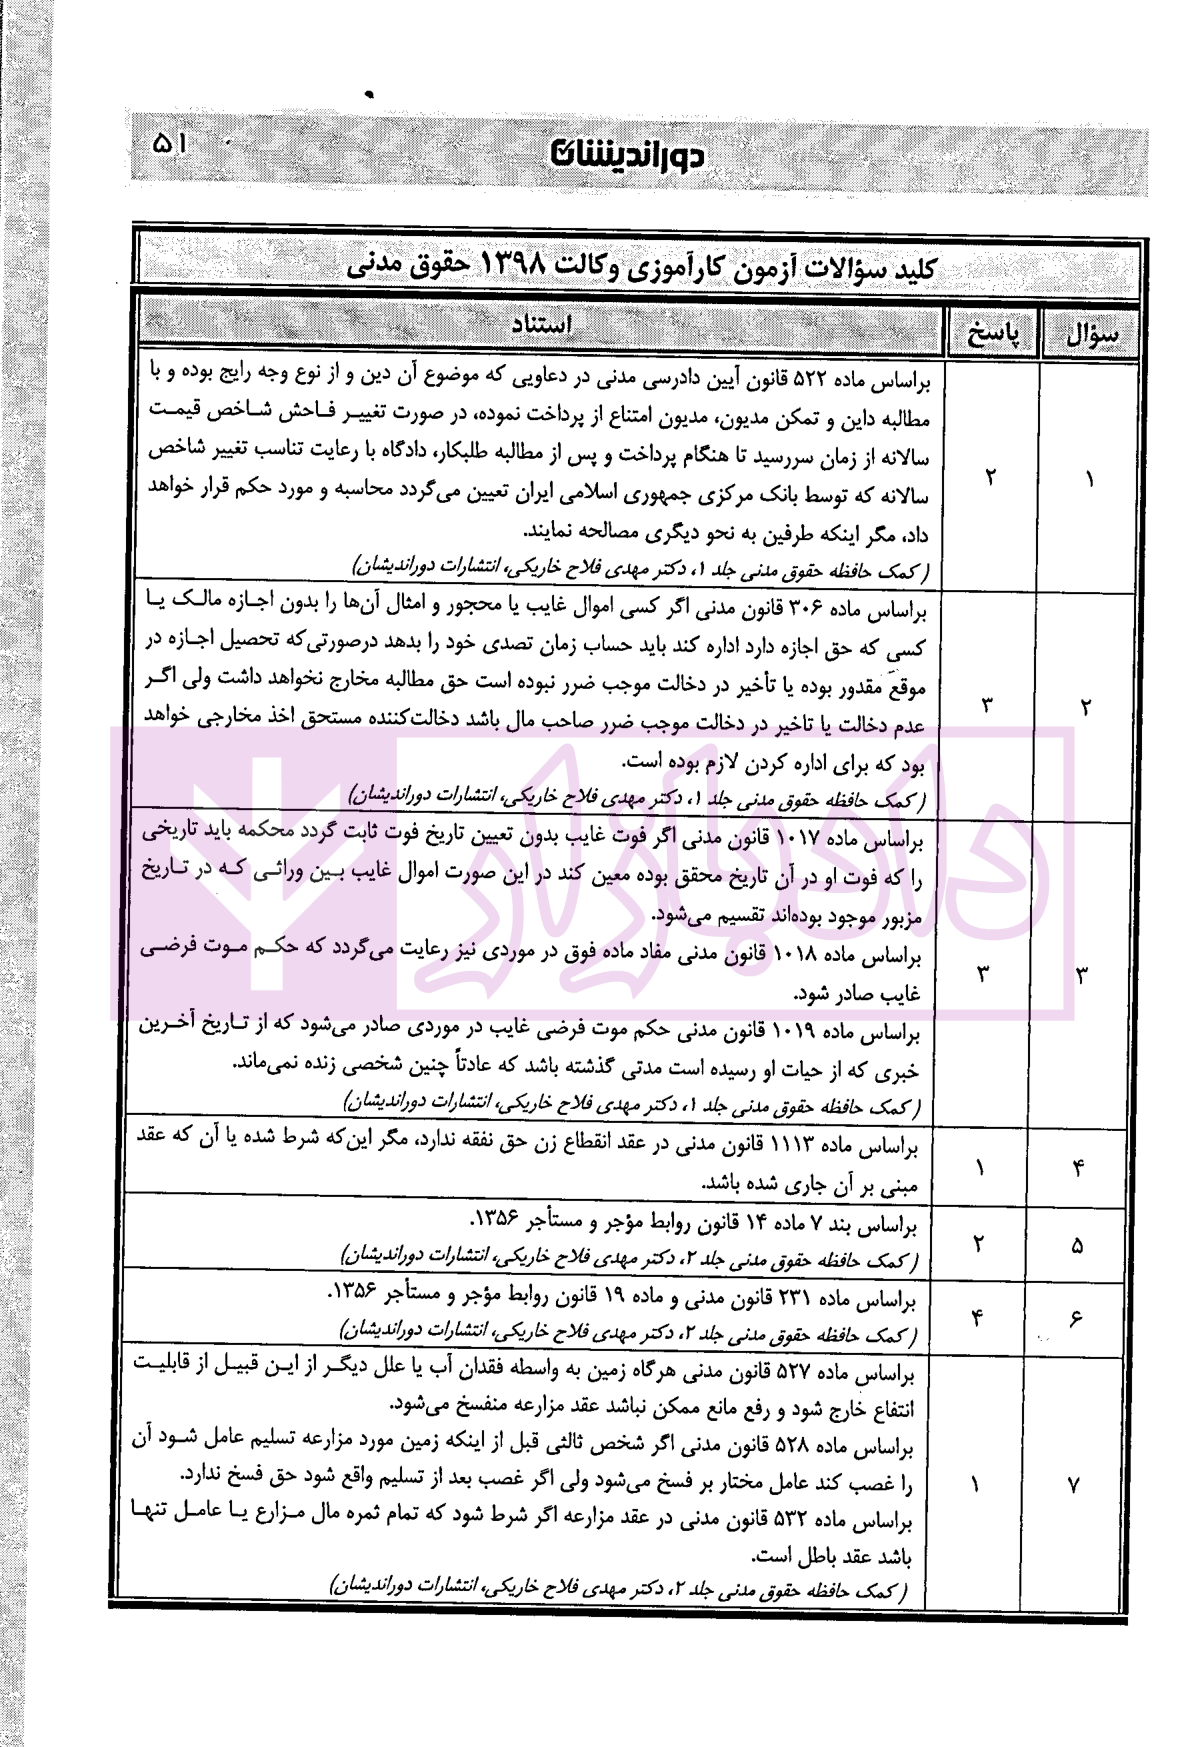 ۵۱
دوراندیشان
کلید سؤالات آزمون کارآموزی وکالت ۱۳۹۸ حقوق مدنی
سؤال پاسخ استناد
۱ ۲
براساس ماده ۵۲۲ قانون آیین دادرسی مدنی در دعاویی که موضوع آن دین و از نوع وجه رایج بوده و با
مطالبه داین و تمکن مدیون، مدیون امتناع از پرداخت نموده، در صورت تغییر فاحش شاخص قیمت
سالانه از زمان سررسید تا هنگام پرداخت و پس از مطالبه طلبکار، دادگاه با رعایت تناسب تغییر شاخص
سالانه که توسط بانک مرکزی جمهوری اسلامی ایران تعیین می‌گردد محاسبه و مورد حکم قرار خواهد
داد، مگر اینکه طرفین به نحو دیگری مصالحه نمایند.
(کمک حافظه حقوق مدنی جلد ۱، دکتر مهدی فلاح خاریکی، انتشارات دوراندیشان)
۲ ۳
براساس ماده ۳۰۶ قانون مدنی اگر کسی اموال غایب یا محجور و امثال آن‌ها را بدون اجازه مالک یا
کسی که حق اجازه دارد اداره کند باید حساب زمان تصدی خود را بدهد درصورتی‌که تحصیل اجازه در
موقع مقدور بوده یا تأخیر در دخالت موجب ضرر نبوده است حق مطالبه مخارج نخواهد داشت ولی اگر
عدم دخالت یا تاخیر در دخالت موجب ضرر صاحب مال باشد دخالت‌کننده مستحق اخذ مخارجی خواهد
بود که برای اداره کردن لازم بوده است.
(کمک حافظه حقوق مدنی جلد ۱، دکتر مهدی فلاح خاریکی، انتشارات دوراندیشان)
۳ ۳
براساس ماده ۱۰۱۷ قانون مدنی اگر فوت غایب بدون تعیین تاریخ فوت ثابت گردد محکمه باید تاریخی
را که فوت او در آن تاریخ محقق بوده معین کند در این صورت اموال غایب بین وراثی که در تاریخ
مزبور موجود بوده‌اند تقسیم می‌شود.
براساس ماده ۱۰۱۸ قانون مدنی مفاد ماده فوق در موردی نیز رعایت می‌گردد که حکم موت فرضی
غایب صادر شود.
براساس ماده ۱۰۱۹ قانون مدنی حکم موت فرضی غایب در موردی صادر می‌شود که از تاریخ آخرین
خبری که از حیات او رسیده است مدتی گذشته باشد که عادتاً چنین شخصی زنده نمی‌ماند.
(کمک حافظه حقوق مدنی جلد ۱، دکتر مهدی فلاح خاریکی، انتشارات دوراندیشان)
۴ ۱
براساس ماده ۱۱۱۳ قانون مدنی در عقد انقطاع زن حق نفقه ندارد، مگر این‌که شرط شده یا آن که عقد
مبنی بر آن جاری شده باشد.
۵ ۲
براساس بند ۷ ماده ۱۴ قانون روابط مؤجر و مستأجر ۱۳۵۶.
(کمک حافظه حقوق مدنی جلد ۲، دکتر مهدی فلاح خاریکی، انتشارات دوراندیشان)
۶ ۴
براساس ماده ۲۳۱ قانون مدنی و ماده ۱۹ قانون روابط مؤجر و مستأجر ۱۳۵۶.
(کمک حافظه حقوق مدنی جلد ۲، دکتر مهدی فلاح خاریکی، انتشارات دوراندیشان)
۷ ۱
براساس ماده ۵۲۷ قانون مدنی هرگاه زمین به واسطه فقدان آب یا علل دیگر از این قبیل از قابلیت
انتفاع خارج شود و رفع مانع ممکن نباشد عقد مزارعه منفسخ می‌شود.
براساس ماده ۵۲۸ قانون مدنی اگر شخص ثالثی قبل از اینکه زمین مورد مزارعه تسلیم عامل شود آن
را غصب کند عامل مختار بر فسخ می‌شود ولی اگر غصب بعد از تسلیم واقع شود حق فسخ ندارد.
براساس ماده ۵۳۲ قانون مدنی در عقد مزارعه اگر شرط شود که تمام ثمره مال مزارع یا عامل تنها
باشد عقد باطل است.
(کمک حافظه حقوق مدنی جلد ۲، دکتر مهدی فلاح خاریکی، انتشارات دوراندیشان)
دادبازار